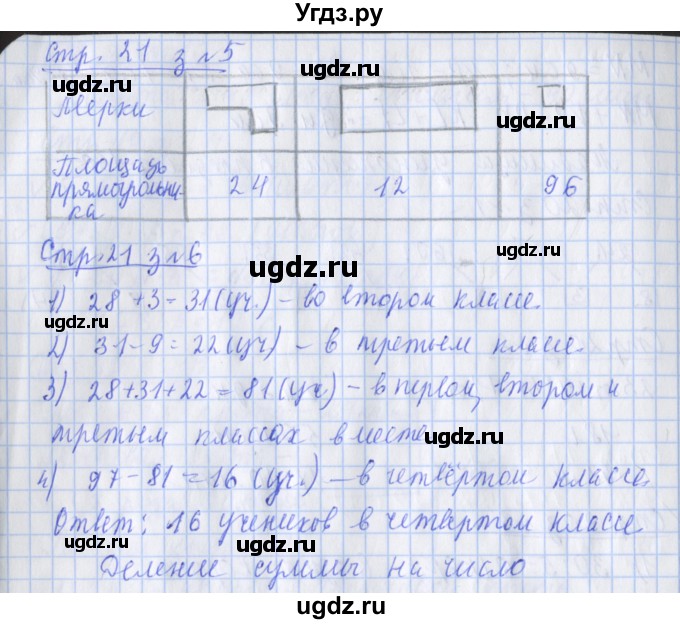 Угдз.ру
Стр. 21 з №5
ugdz.ru
Мерки
ugdz.ru
ugdz.ru
Площадь
прямоугольни-
ка
24 12 96
ugdz.ru
Стр. 21 з №6
ugdz.ru
ugdz.ru
1) 28 + 3 = 31 (уч.) – во втором классе.
ugdz.ru
2) 31 - 9 = 22 (уч) – в третьем классе.
3) 28+31+22 = 81 (уч) – в первом, втором и
ugdz.ru
третьем классах вместе
ugdz.ru
4) 97 - 81 = 16 (уч.) – в четвёртом классе.
Ответ: 16 учеников в четвёртом классе.
ugdz.ru
ugdz.ru
Деление суммы на число
ugdz.ru